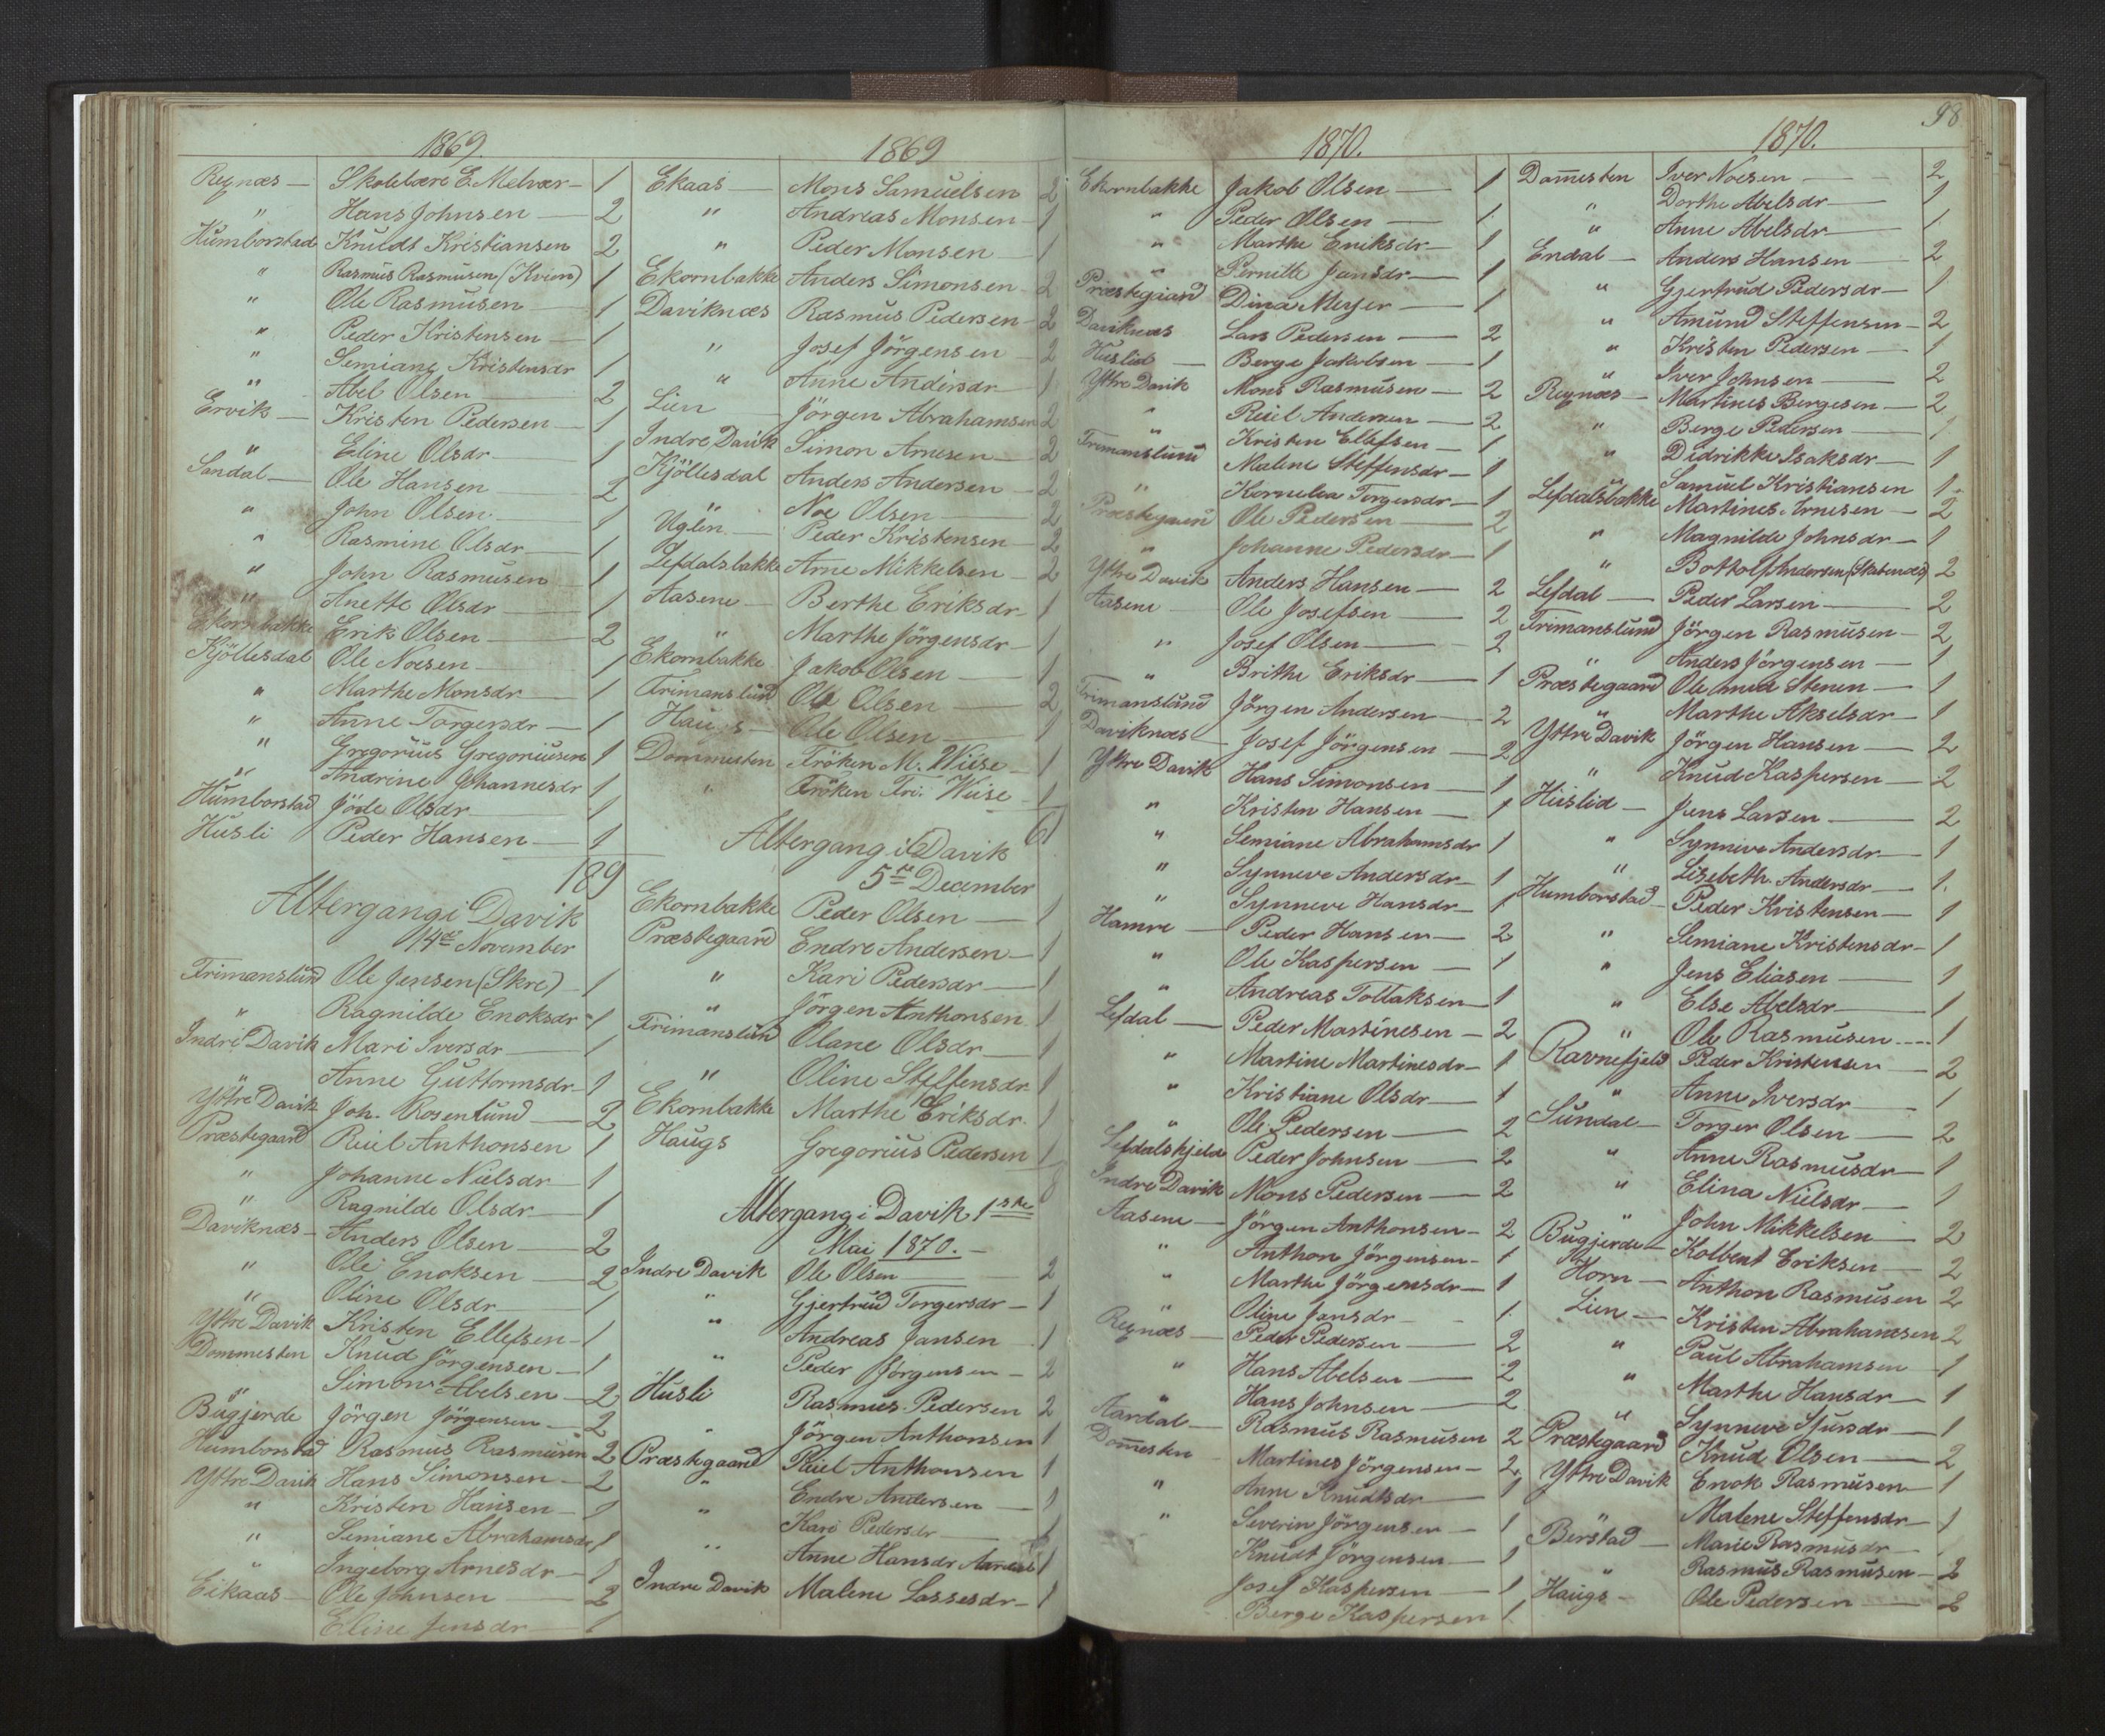 1869.
Rejnæs — Skolelærer E. Melvær — 1
" Hans Johnsen — 2
Humborstad Knudt Kristiansen 2
" Rasmus Rasmusen (Kvien) 1
" Ole Rasmusen — 1
" Peder Kristensen — 1
" Semiane Kristensdr 1
" Abel Olsen — 2
Ervik — Kristen Pedersen — 1
" Eline Olsdr — 1
Sandal — Ole Hansen — 2
" John Olsen — 1
" Rasmine Olsdr — 1
" John Rasmusen — 1
" Anette Olsdr — 1
Ekornbakke Erik Olsen — 2
Kjöllesdal Ole Noesen — 1
" Marthe Monsdr — 1
" Anne Torgersdr — 1
" Gregorius Gregoriusen 1
" Andrine Johannesdr 1
Humborstad Jöde Olsdr — 1
Husli Peder Hansen — 1
189
Altergang i Davik
14de November
Frimanslund Ole Jensen (Skre) — 1
" Ragnilde Enoksdr — 1
Indre Davik Mari Iversdr — 1
" Anne Guttormsdr — 1
Yttre Davik Joh. Rosenlund — 2
Præstegaard Reiel Anthonsen 1
" Johanne Nielsdr — 1
" Ragnilde Olsdr — 1
Daviknæs — Anders Olsen — 2
" Ole Enoksen — 2
" Oline Olsdr — 1
Yttre Davik Kristen Ellefsen — 1
Dommesten Knud Jörgensen — 1
" Simon Abelsen — 2
Bugjerde Jörgen Jörgensen — 2
Humborstad Rasmus Rasmusen 2
Yttre Davik Hans Simonsen — 2
" Kristen Hansen — 1
" Semiane Abrahamsdr 1
" Ingeborg Arnesdr — 1
Eikaas — Ole Johnsen — 2
Eline Jensdr — 1
1869
Ekaas — Mons Samuelsen 2
" Andreas Monsen — 1
" Peder Monsen — 1
Ekornbakke Anders Simonsen — 2
Daviknæs Rasmus Pedersen — 2
" Josef Jörgensen — 2
" Anne Andersdr — 1
Lien — Jörgen Abrahamsen 2
Indre Davik Simon Arnesen — 2
Kjöllesdal Anders Andersen — 2
" Noe Olsen — 2
Uglen — Peder Kristensen — 2
Lefdalsbakke Arne Mikkelsen — 2
Aasene — Berthe Eriksdr — 1
" Marthe Jörgensdr — 1
Ekornbakke Jakob Olsen — 1
Frimanslund Ole Olsen — 2
Haugs — Ole Olsen — 1
Dommesten Fröken M. Wiese — 1
" Fröken Fri. Wiese — 1
61
Altergang i Davik
5te December
Ekornbakke Peder Olsen — 1
Præstegaard Endre Andersen — 1
" Kari Pedersdr — 1
" Jörgen Anthonsen 1
Frimanslund Olane Olsdr — 1
" Oline Steffensdr — 1
Ekornbakke Marthe Eriksdr. 1
Haugs Gregorius Pedersen 1
8
Altergang i Davik 1ste
Mai 1870. —
Indre Davik Ole Olsen — 2
" Gjertrud Torgersdr — 1
" Andreas Jansen 1
" Peder Jörgensen — 2
Husli Rasmus Pedersen 2
" Jörgen Anthonsen 1
Præstegaard Reiel Anthonsen 1
" Endre Andersen — 1
" Kari Pedersdr — 1
" Anne Hansdr Aardal 1
Indre Davik Malene Lassesdr — 1
1870.
Ekornbakke Jakob Olsen — 1
" Peder Olsen — 1.
" Marthe Eriksdr — 1
" Pernille Jansdr — 1
Præstegiard Dina Meyer — 1
Daviknæs Lars Pedersen — 2
Huslid — Berge Jakobsen — 1
Yttre Davik Mons Rasmusen — 2
" Reiel Andersen — 2
" Kristen Ellefsen — 1
Frimanslund Malene Steffensdr — 1
" Kornelia Torgersdr — 1
Præstegaard Ole Pedersen — 2
" Johanne Pedersdr — 1
Yttre Davik Anders Hansen — 2
Aasene — Ole Josefsen — 2
" Josef Olsen — 2
" Brithe Eriksdr — 1
Frimanslund Jörgen Andersen — 2
Daviknæs — Josef Jörgensen — 2
Yttre Davik Hans Simonsen — 1
" Kristen Hansen — 1
" Semiane Abrahamsdr 1
" Synneve Andersdr — 1
" Synneve Hansdr — 1
Hamre — Peder Hansen — 2
" Ole Kaspersen — 1
" Andreas Tollaksen — 1
Lefdal — Peder Martinesen — 2
" Martine Martinesdr — 1
" Kristiane Olsdr — 1
" Ole Pedersen — 2
Lefdalskjelde Peder Johnsen — 2
Indre Davik Mons Pedersen — 2
Aasene — Jörgen Anthonsen — 2
" Anthon Jörgensen — 1
" Marthe Jörgensdr — 1
" Oline Jansdr — 1.
Rejnæs — Peder Pedersen — 2
" Hans Abelsen — 2
" Hans Johnsen — 2
Aardal — Rasmus Rasmusen 2
Domesten Martines Jörgensen — 2
" Anne Knudtsdr — 1
" Severin Jörgensen — 1
Knudt Jörgensen — 1
Josef Kaspersen — 1
Berge Kaspersen 1.
1870.
98
Domesten Iver Noesen — 2
" Dorthe Abelsdr — 1
" Anne Abelsdr — 1
Endal — Anders Hansen — 2
" Gjertrud Pedersdr — 1
" Amund Steffensen — 2
" Kristen Pedersen — 1
" Iver Johnsen — 2
Rejnæs — Martines Bergesen — 2
" Berge Pedersen — 1
" Didrikke Isaksdr — 1
" Samuel Kristiansen 1
Lefdalsbakke Martines Arnesen — 2
" Magnilde Johnsdr — 1
" Bottolf Andersen (Stabenæs) 2
Lefdal — Peder Larsen — 2
Frimanslund Jörgen Rasmusen — 2
" Anders Jörgensen — 1
Præstegaard Ole Stenen — 1
" Marthe Akselsdr — 1
Yttre Davik Jörgen Hansen — 2
" Knud Kaspersen — 2
Huslid — Jens Larsen — 2
" Synneve Andersdr — 1
" Lisebeth Andersdr — 1.
Humborstad — Peder Kristensen — 1
" Semiane Kristensdr — 1
" Jens Eliasen — 1
" Else Abelsdr — 1
" Ole Rasmusen — 1
Ravnefjeld Peder Kristensen — 2
" Anne Iversdr — 1
Sundal — Torger Olsen — 2
" Anne Rasmusdr — 1
" Elina Nielsdr — 1
" John Mikkelsen — 2
Bugjerde — Kolbent Eriksen — 2
Horn — Anthon Rasmusen 2
Lien — Kristen Abrahamsen 2
" Paul Abrahamsen — 1
" Marthe Hansdr — 1
" Synneve Sjursdr — 1
Præstegaard Knud Olsen — 2
Yttre Davik Enok Rasmusen — 1
" Malene Steffensdr — 1
Berstad — Marie Rasmusdr — .
" Rasmus Rasmusen — 2
Haugs — Ole Pedersen — 2